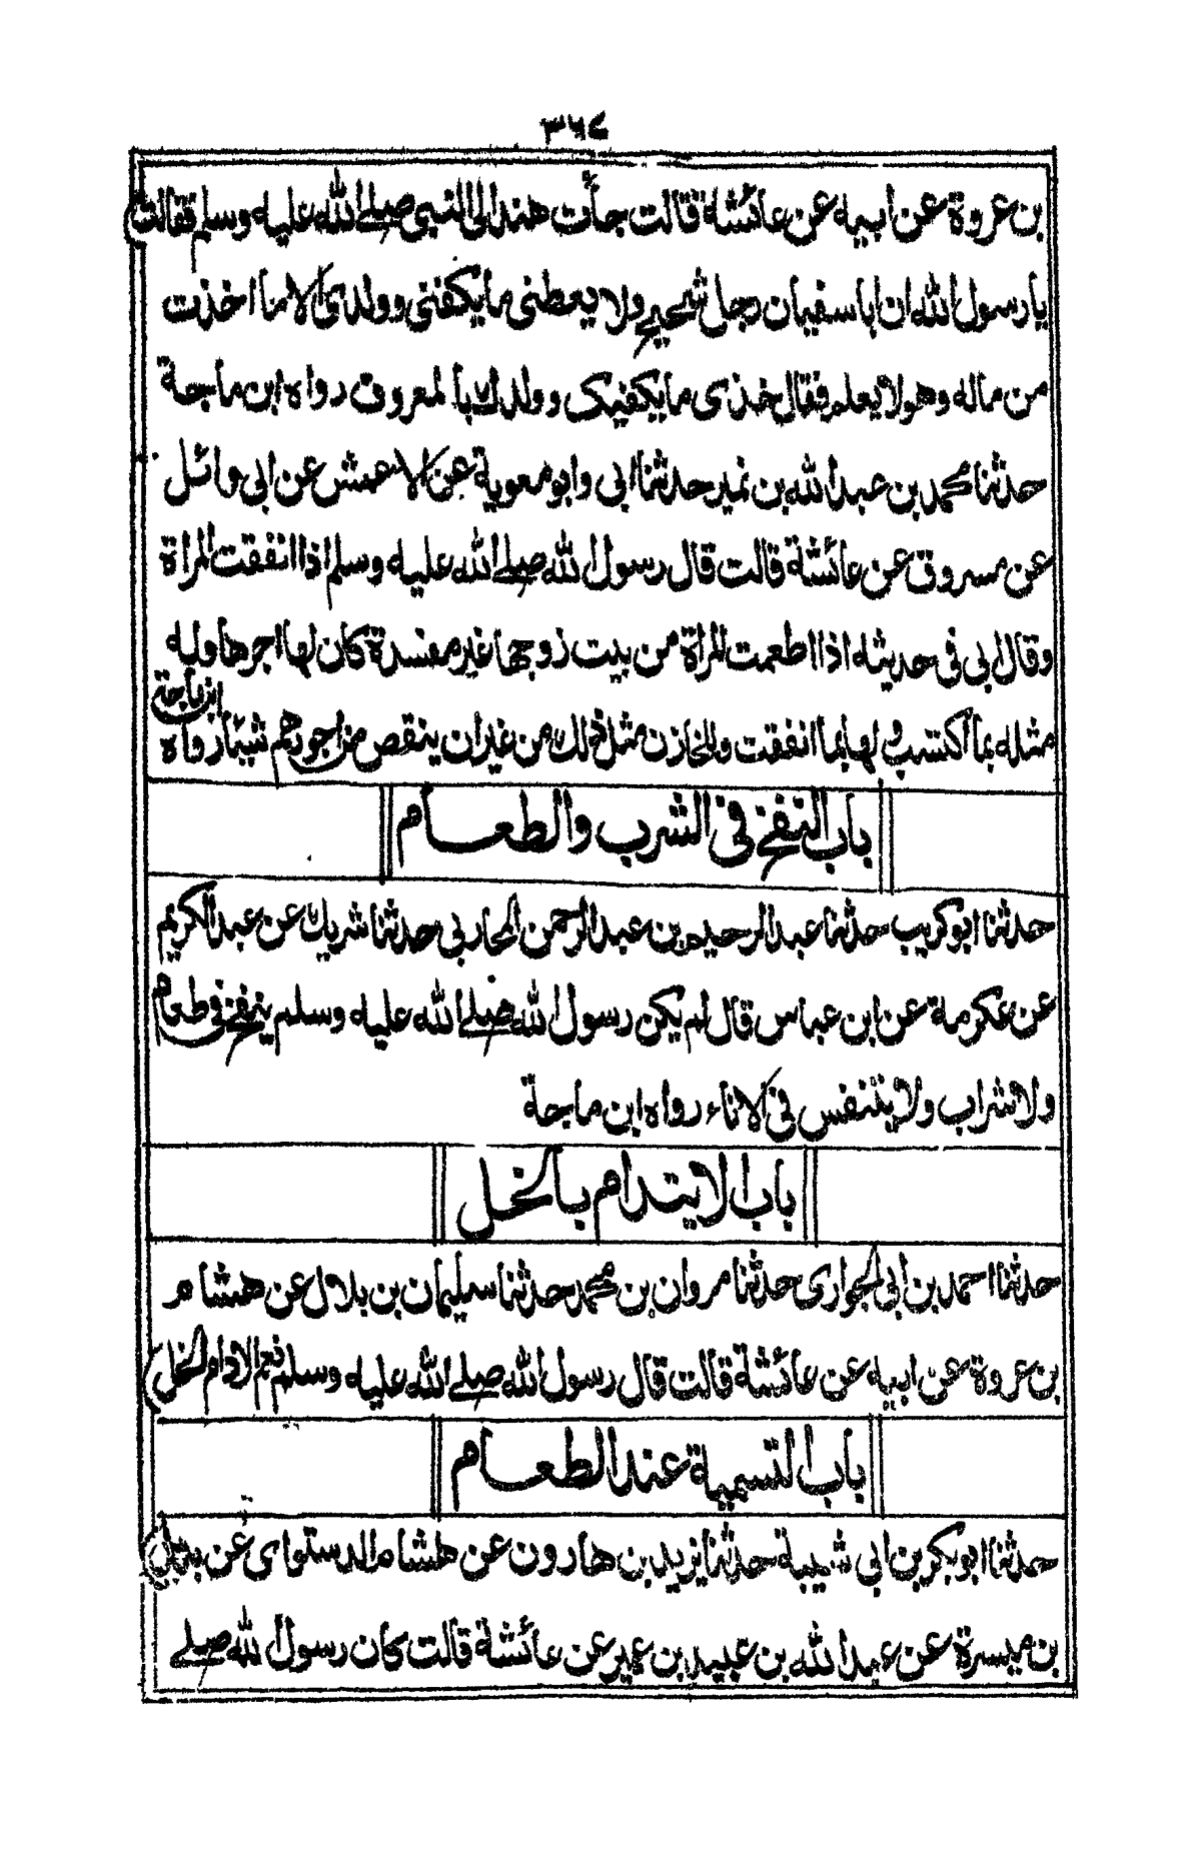 ٣٦٧
بن عروة عن ابيه عن عائشة قالت جأت هند الى النبى صلے الله عليه وسلم فقالت
يا رسول الله ان ابا سفيان رجل شحيح ولا يعطنى ما يكفنى وولدى الا ما اخذت
من ماله وهو لا يعلم فقال خذى ما يكفيك وولدك بالمعروف رواه ابن ماجة
حدثنا محمد بن عبد الله بن نمير حدثنا ابى وابو معوية عن الاعمش عن ابى وائل
عن مسروق عن عائشة قالت قال رسول الله صلے الله عليه وسلم اذا انفقت المراة
وقال ابى فى حديثه اذا اطعمت المراة من بيت زوجها غير مفسدة كان لها اجرها وله
مثله بما اكتسب ولها بما انفقت وللخازن مثل ذلك من غير ان ينقص من اجورهم شيئا رواه ابن ماجة
باب النفخ فى الشرب والطعام
حدثنا ابو كريب حدثنا عبد الرحيم بن عبد الرحمن المحاربى حدثنا شريك عن عبد الكريم
عن عكرمة عن ابن عباس قال لم يكن رسول الله صلے الله عليه وسلم ينفخ فى طعام
ولا شراب ولا يتنفس فى الاناء رواه ابن ماجة
باب الايتدام بالخل
حدثنا احمد بن ابى الحوارى حدثنا مروان بن محمد حدثنا سليمان بن بلال عن هشام
بن عروة عن ابيه عن عائشة قالت قال رسول الله صلے الله عليه وسلم نعم الادام الخل
باب التسمية عند الطعام
حدثنا ابو بكر بن ابى شيبة حدثنا يزيد بن هارون عن هشام الدستواى عن بديل
بن ميسرة عن عبد الله بن عبيد بن عمير عن عائشة قالت كان رسول الله صلے